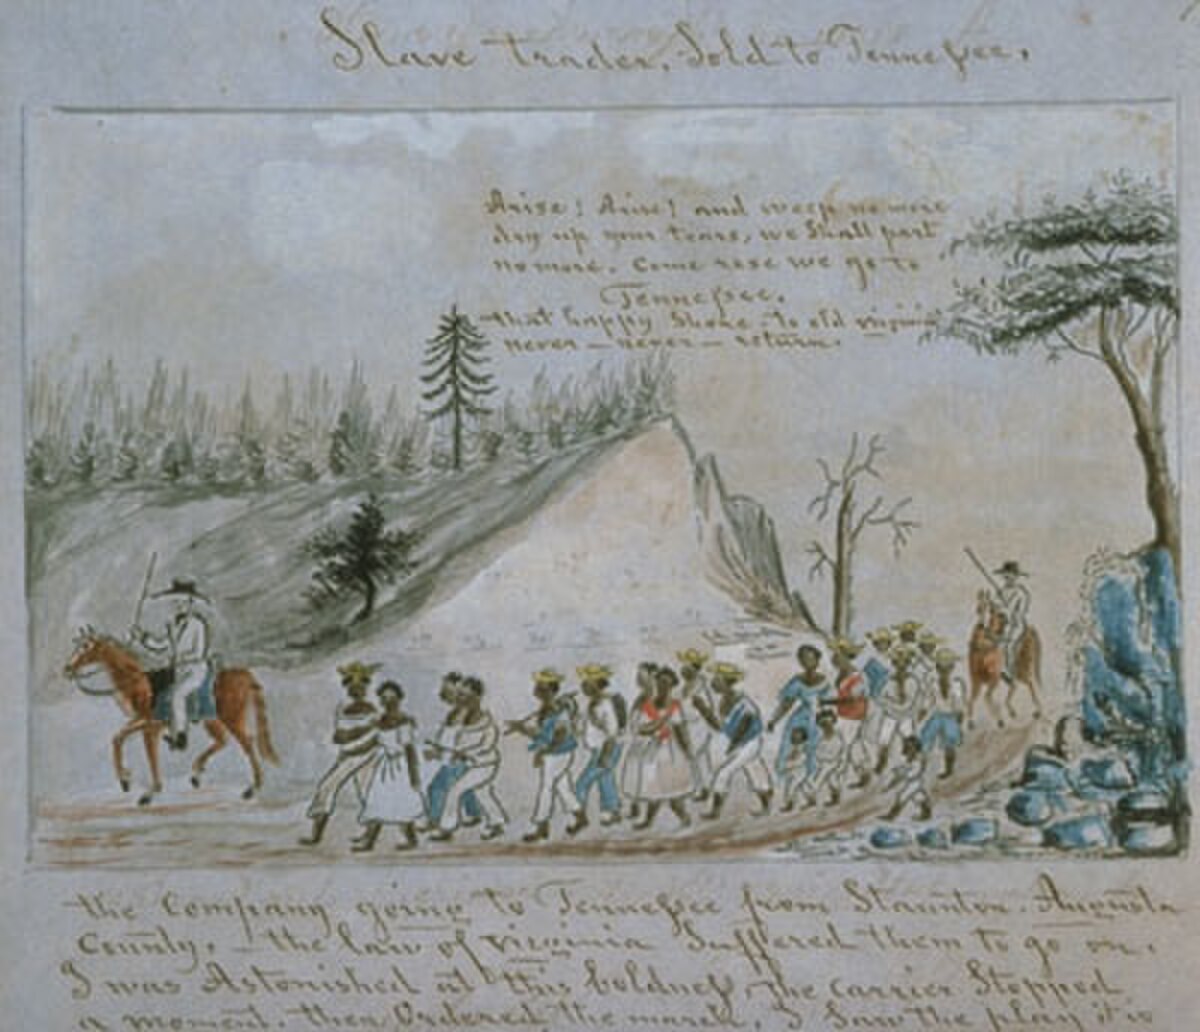 Slave trader, Sold to Tennessee,
Arise! Arise! and weep no more
dry up your tears, we shall part
no more. Come rose we go to
Tennessee,
that happy Shore, to old virginia
never — never — return.
the Company going to Tennessee from Staunton, Augusta
County, — the law of virginia Suffered them to go on.
I was Astonished at this boldness, the carrier Stopped
a moment, then Ordered the march, I Saw the play it is